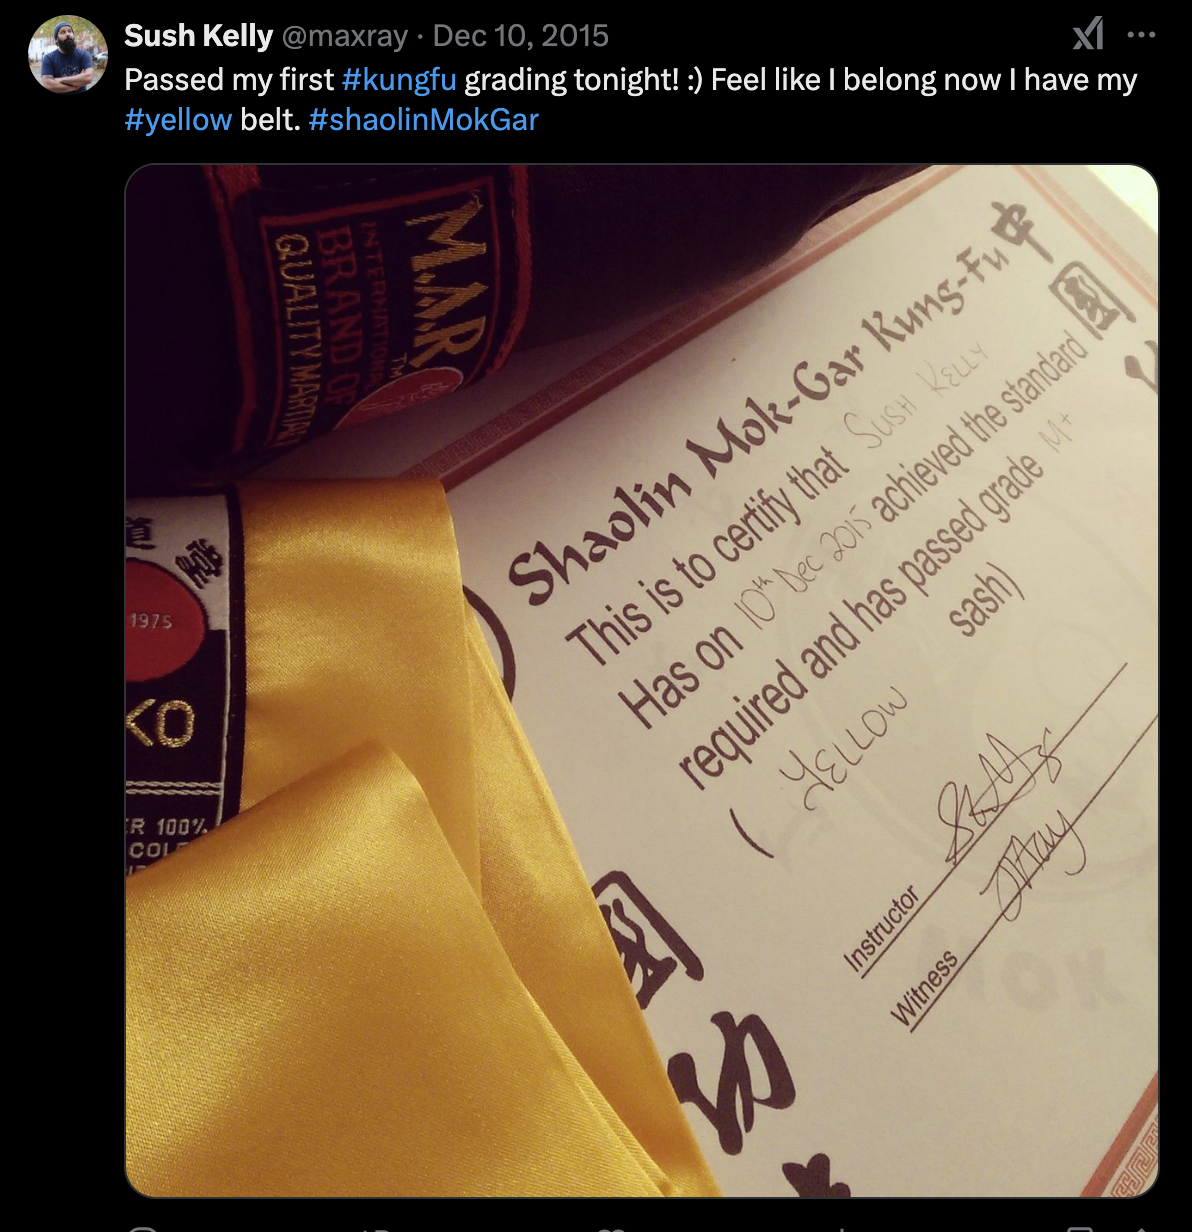 Sush Kelly @maxray · Dec 10, 2015
Passed my first #kungfu grading tonight! :) Feel like I belong now I have my
#yellow belt. #shaolinMokGar
M.A.R
INTERNATIONAL TM
BRAND OF
QUALITY MARTIAL
1975
KO
ER 100%
COL
Shaolin Mok-Gar Kung-Fu
This is to certify that Sush Kelly
Has on 10th Dec 2015 achieved the standard
required and has passed grade M+
( YELLOW sash)
Instructor
Witness
中
國
國
功